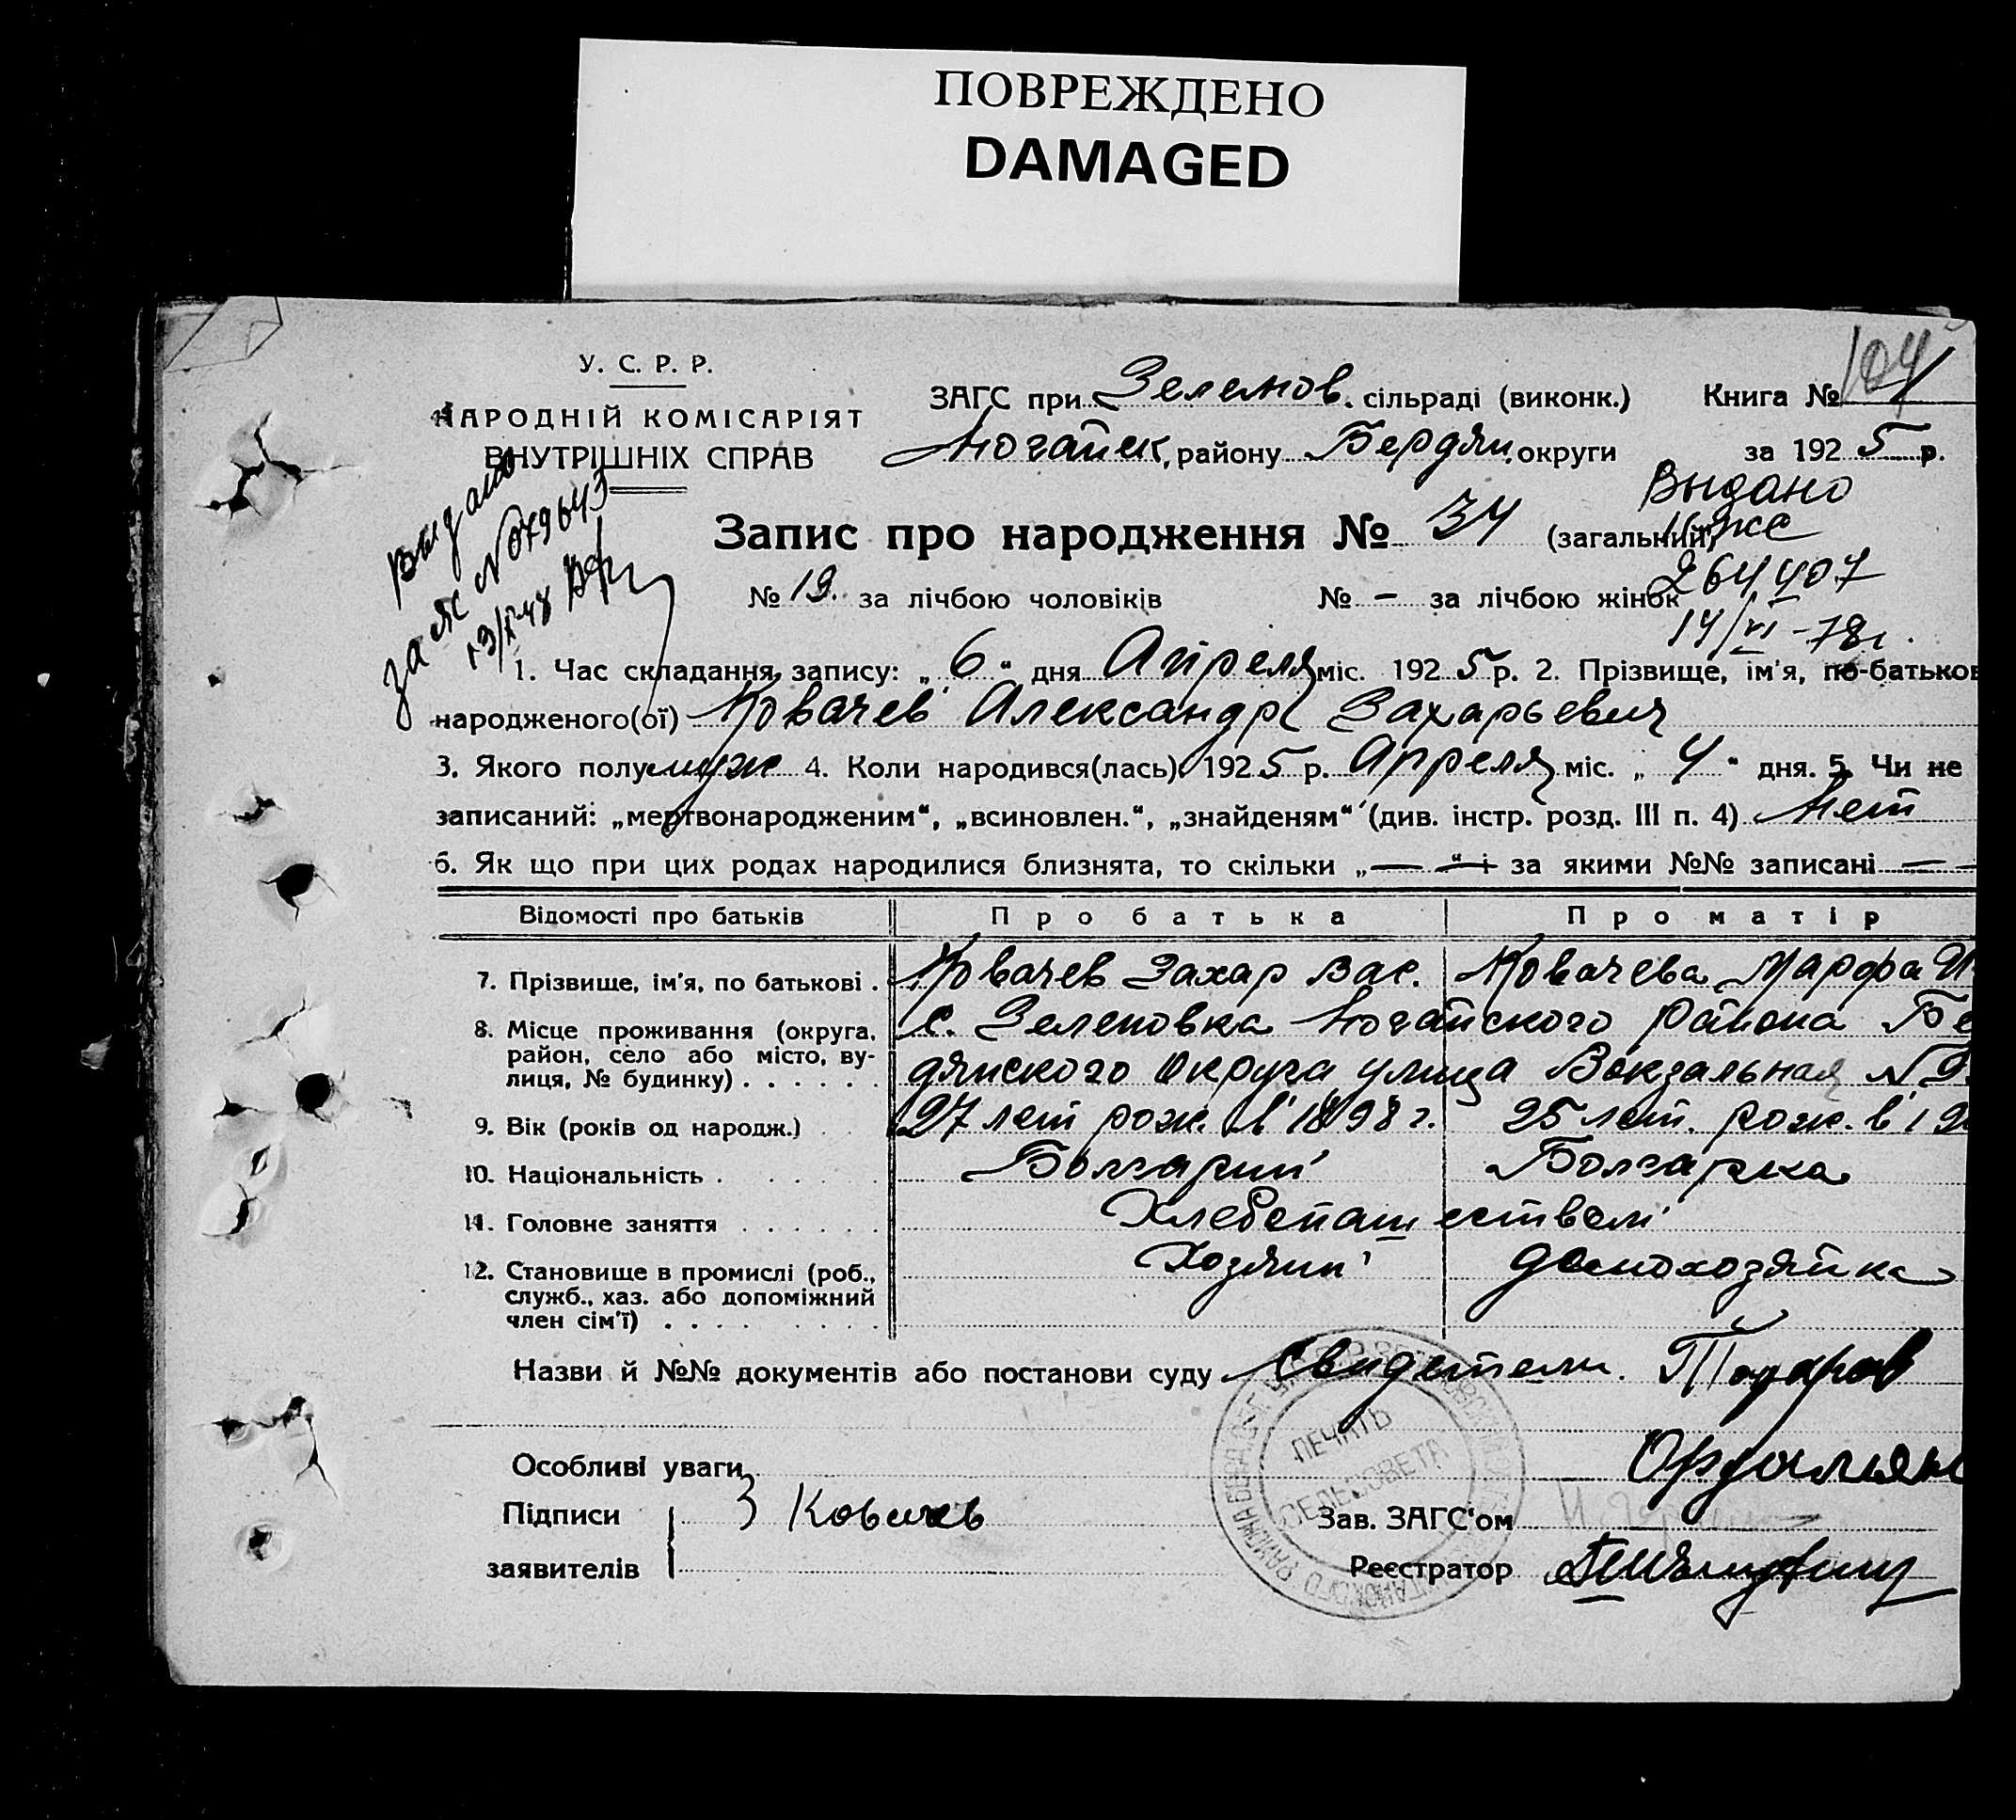 ПОВРЕЖДЕНО
DAMAGED
104
У. С. Р. Р.
НАРОДНІЙ КОМІСАРІЯТ
ВНУТРІШНІХ СПРАВ
ЗАГС при Зеленов. сільраді (виконк.) Книга № 1
Ногайск, району Бердян. округи за 1925 р.
выдано
за ЯС №079643
Выдано
264407
14/VI-78г.
Запис про народження № 34 (загальний)
№ 19. за лічбою чоловіків № – за лічбою жінок
1. Час складання запису: „6“ дня Апреля міс. 1925 р. 2. Прізвище, ім'я, по-батьков
народженого(ої) Ковачев Александр Захарьевич
3. Якого полу муж 4. Коли народився(лась) 1925 р. Апреля міс. „4“ дня. 5. Чи не
записаний: „мертвонародженим“, „всиновлен.“, „знайденям“ (див. інстр. розд. III п. 4) Нет
6. Як що при цих родах народилися близнята, то скільки „—“ і за якими №№ записані —
Відомості про батьків Про батька Про матір
7. Прізвище, ім'я, по батькові . Ковачев Захар Вас. Ковачева Марфа И
8. Місце проживання (округа, район, село або місто, вулиця, № будинку) . . . . . . с. Зеленовка Ногайского района Бе
дянского Округа улица Вокзальная №
9. Вік (років од народж.) . . 27 лет рож. в 1898 г. 25 лет. рож. в 19
10. Національність . . . . . Болгарин Болгарка
11. Головне заняття . . . . . Хлебопашеством
12. Становище в промислі (роб., служб., хаз. або допоміжний член сім'ї) . . . . . . . . Хозяин домохозяйка
Назви й №№ документів або постанови суду Свидетели. Тодоров
Особливі уваги
ПЕЧАТЬ
СЕЛЬСОВЕТА
Підписи З Ковачев Зав. ЗАГС'ом
заявителів Реєстратор